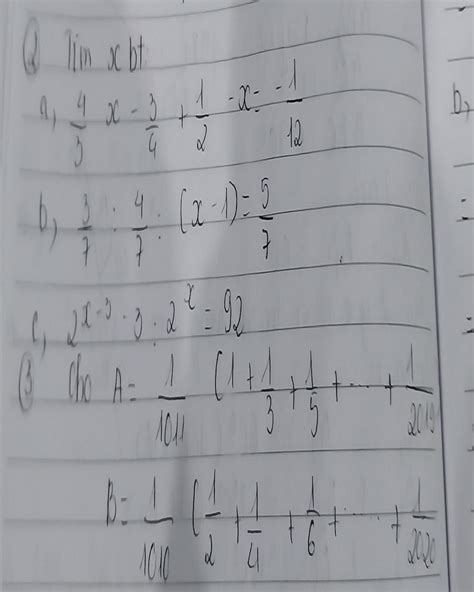 ② Tìm x bt
a, 4/3 x - 3/4 + 1/2 - x = - 1/12
b, 3/7 : 4/7 : (x - 1) = 5/7
c, 2^(x-3) . 3 . 2^x = 92
③ Cho A = 1/1011 (1 + 1/3 + 1/5 + ... + 1/2019
B = 1/1010 (1/2 + 1/4 + 1/6 + ... + 1/2020